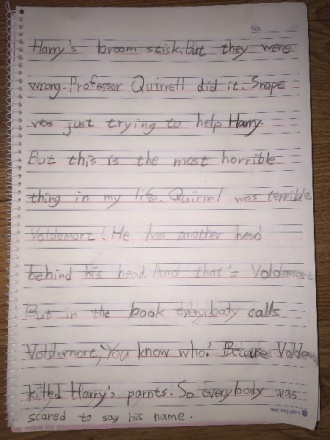 No.
Harry's broom stick. But they were
wrong. Professor Quirrell did it. Snape
was just trying to help Harry.
But this is the most horrible
thing in my life. Quirrel was terrible
Voldemort! He has another head
behind his head. And that's Voldemort
But in the book everybody calls
Voldurmort, "You know who". Because Voldemort
killed Harry's parnts. So everybody was
scared to say his name.